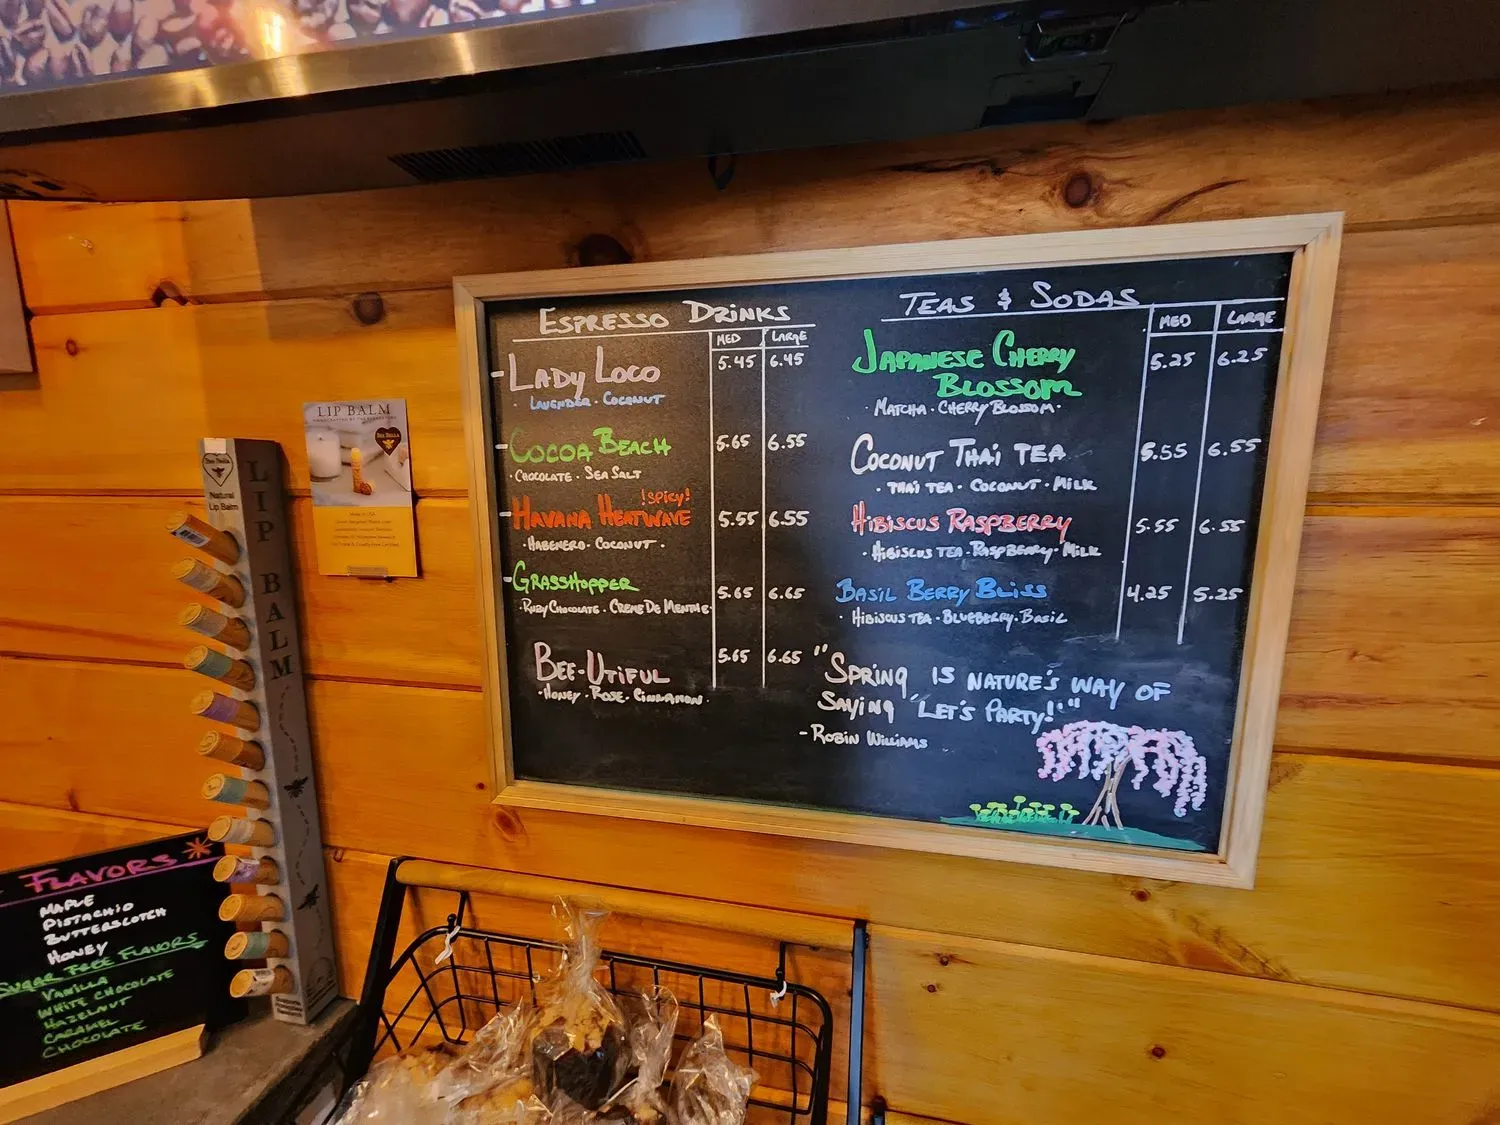 ESPRESSO DRINKS
MED LARGE
- LADY LOCO 5.45 6.45
· LAVENDER · COCONUT
- COCOA BEACH 5.65 6.55
· CHOCOLATE · SEA SALT
!SPICY!
- HAVANA HEATWAVE 5.55 6.55
· HABENERO · COCONUT ·
- GRASSHOPPER 5.65 6.65
· RUBY CHOCOLATE · CREME DE MENTHE ·
BEE-UTIFUL 5.65 6.65
· HONEY · ROSE · CINNAMON ·
TEAS & SODAS
MED LARGE
JAPANESE CHERRY 5.25 6.25
BLOSSOM
· MATCHA · CHERRY BLOSSOM ·
COCONUT THAI TEA 5.55 6.55
· THAI TEA · COCONUT · MILK
HIBISCUS RASPBERRY 5.55 6.55
· HIBISCUS TEA · RASPBERRY · MILK
BASIL BERRY BLISS 4.25 5.25
· HIBISCUS TEA · BLUEBERRY · BASIL
"SPRING IS NATURE'S WAY OF
SAYING 'LET'S PARTY!'"
- ROBIN WILLIAMS
LIP BALM
BEE BELLA
Natural
Lip Balm
LIP BALM
FLAVORS
MAPLE
PISTACHIO
BUTTERSCOTCH
HONEY
SUGAR FREE FLAVORS
VANILLA
WHITE CHOCOLATE
HAZELNUT
CARAMEL
CHOCOLATE